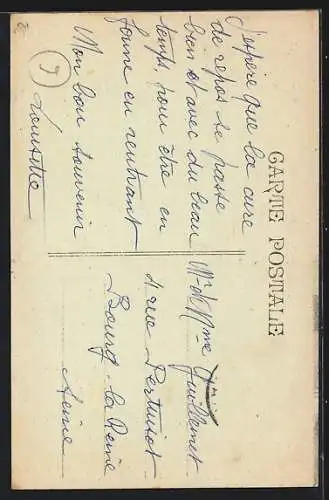 CARTE POSTALE
J'espère que la cure
de repos se passe
bien et avec du beau
temps pour être en
forme en rentrant
Mon bon souvenir
Louisette
Mr & Mme Guillemet
4 rue Pertuisot
Bourg-la-Reine
Seine